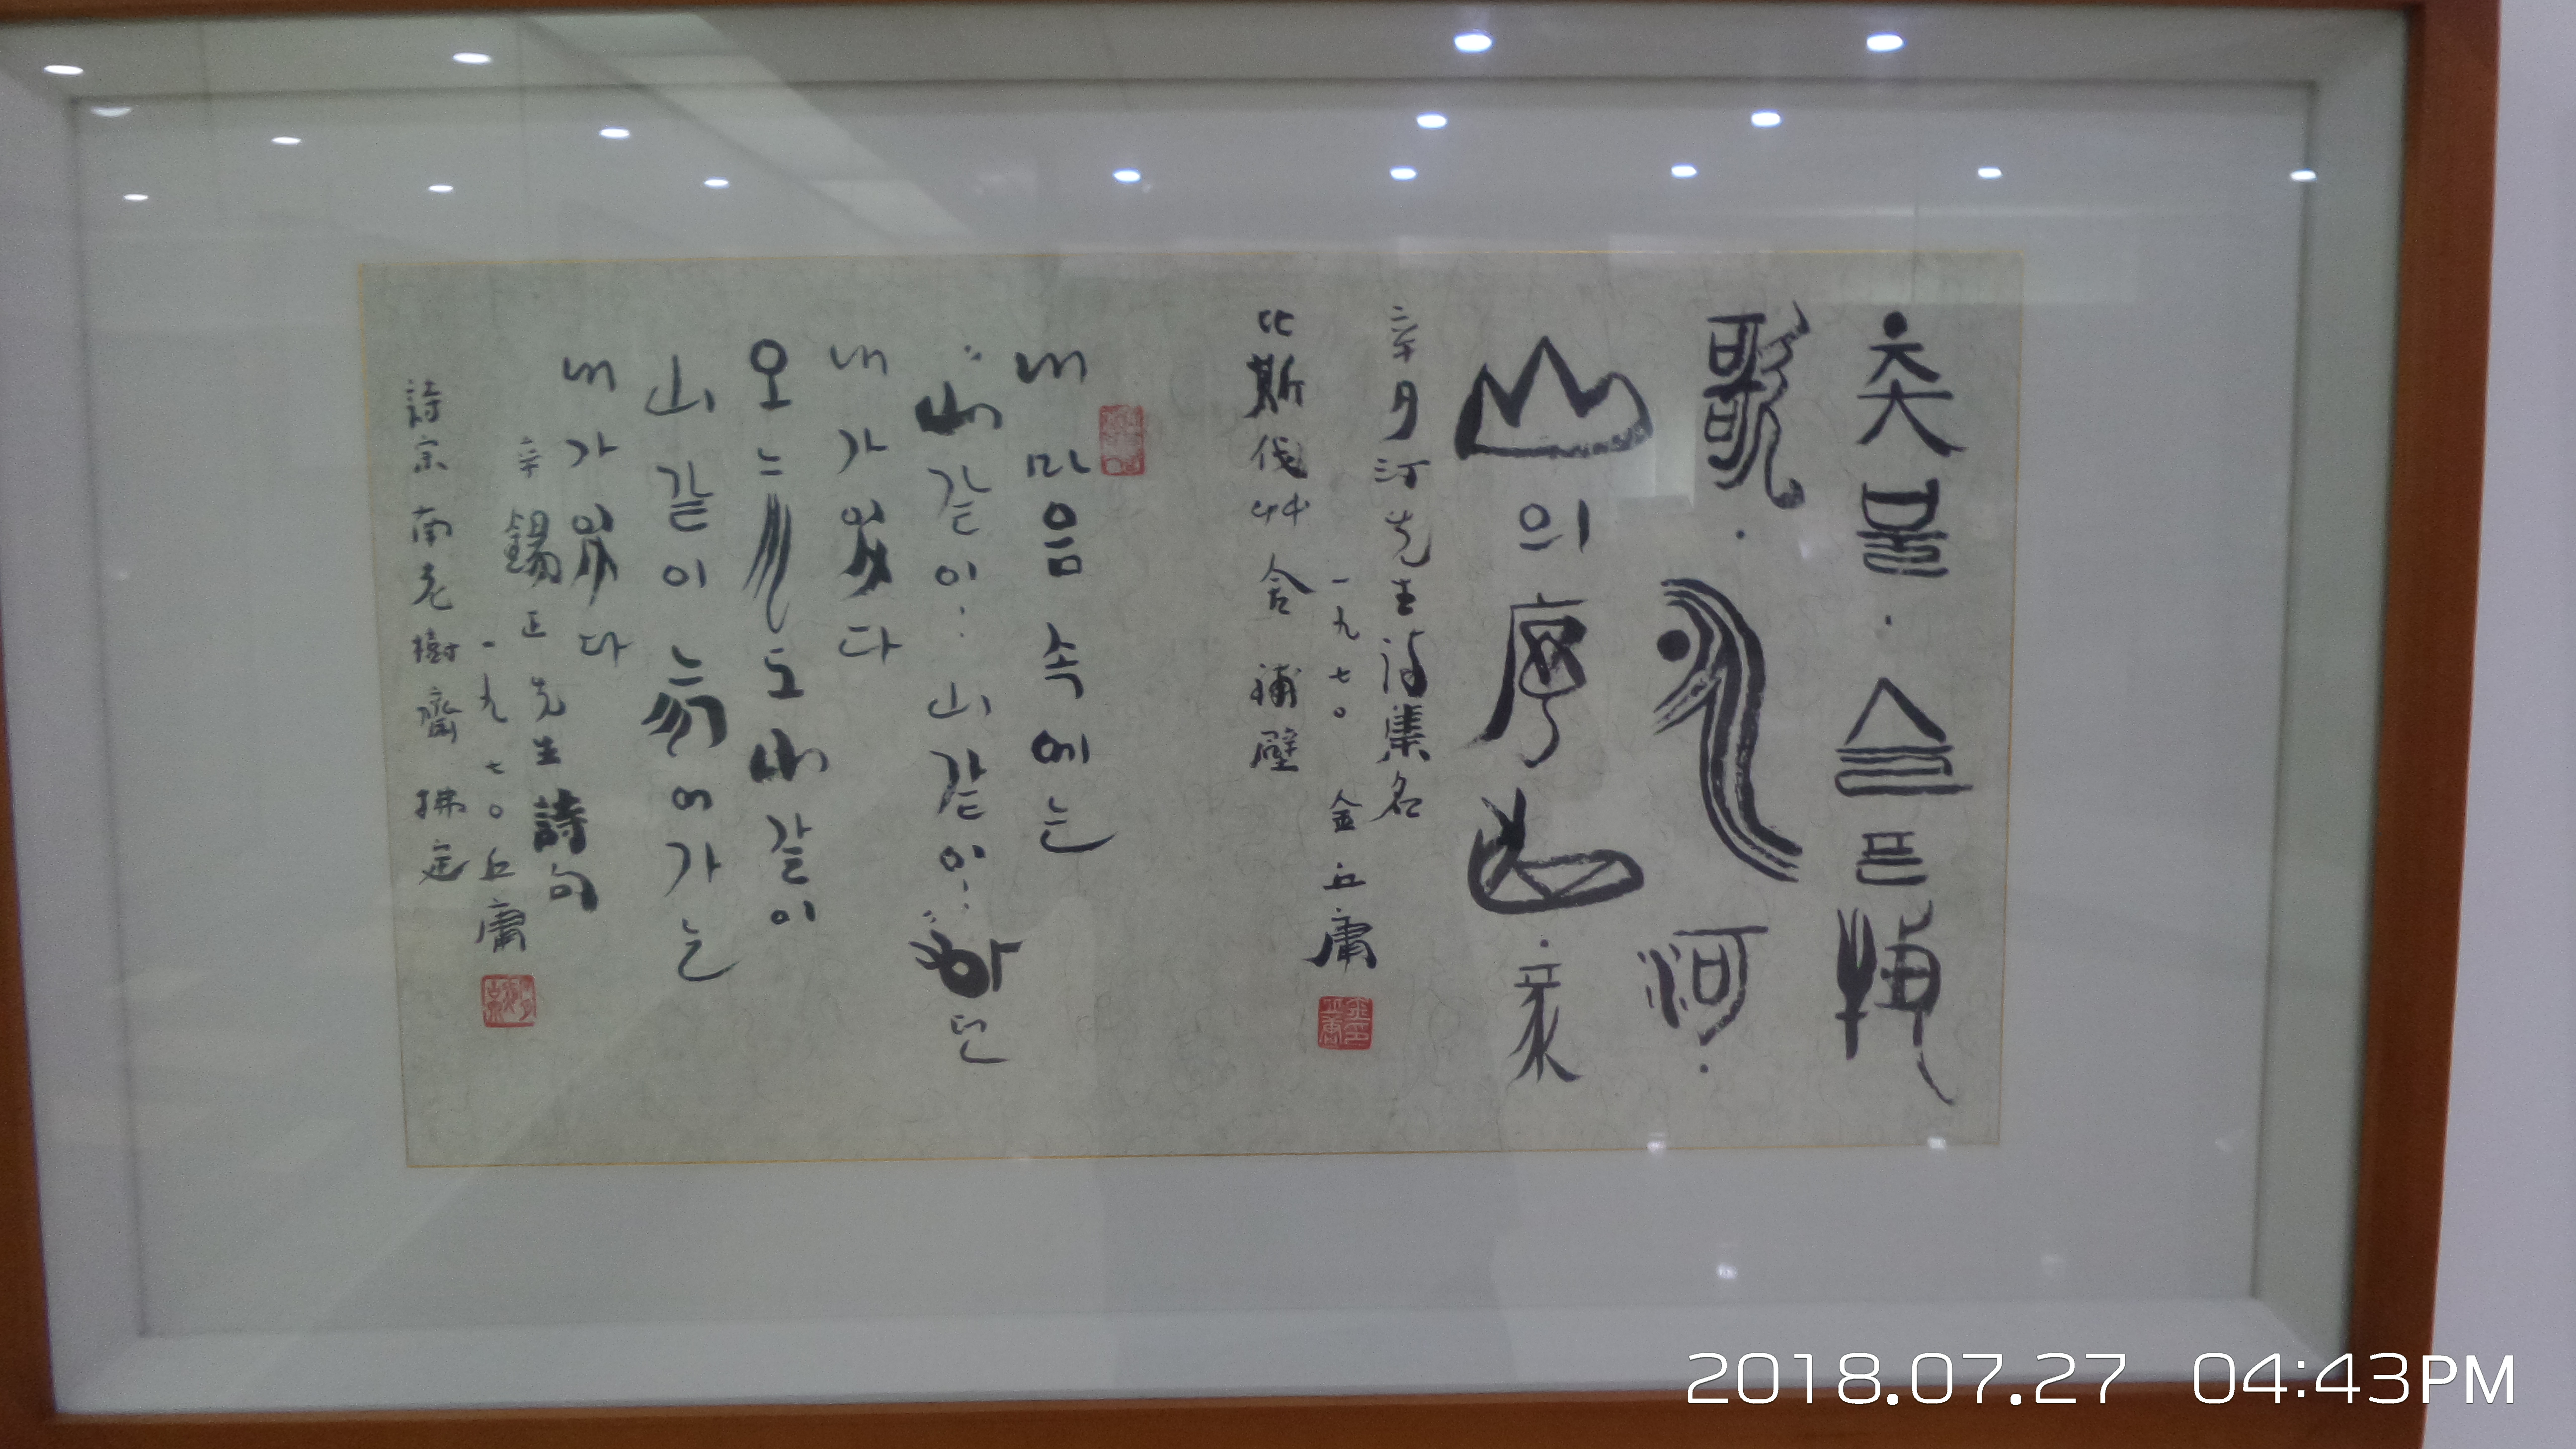 촛불 · 슬픈 牧
歌 · 氷河 ·
山의 序曲 ·
辛夕汀先生詩集名
一九七○ 金丘庸
比斯伐艸舍 補壁
내 마음 속에는
山같이 山같이 하던
내가 있다
오는 날도 山같이
山같이 늙어가는
내가 있다
辛錫正先生詩句
一九七○ 丘庸
詩宗 南老樹齋
2018.07.27 04:43PM